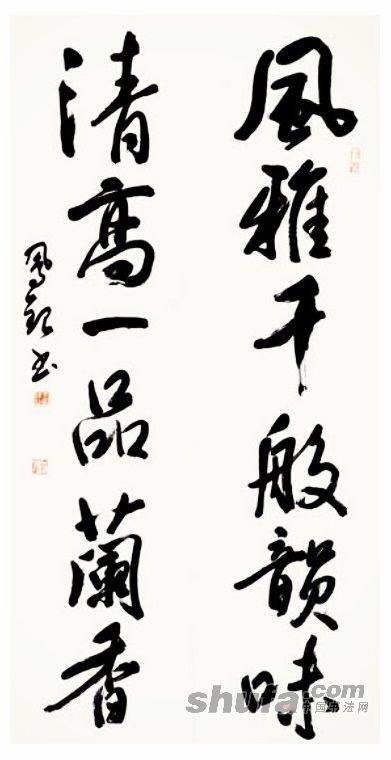 風雅千般韻味
清高一品蘭香
shufa.com
中国书法网